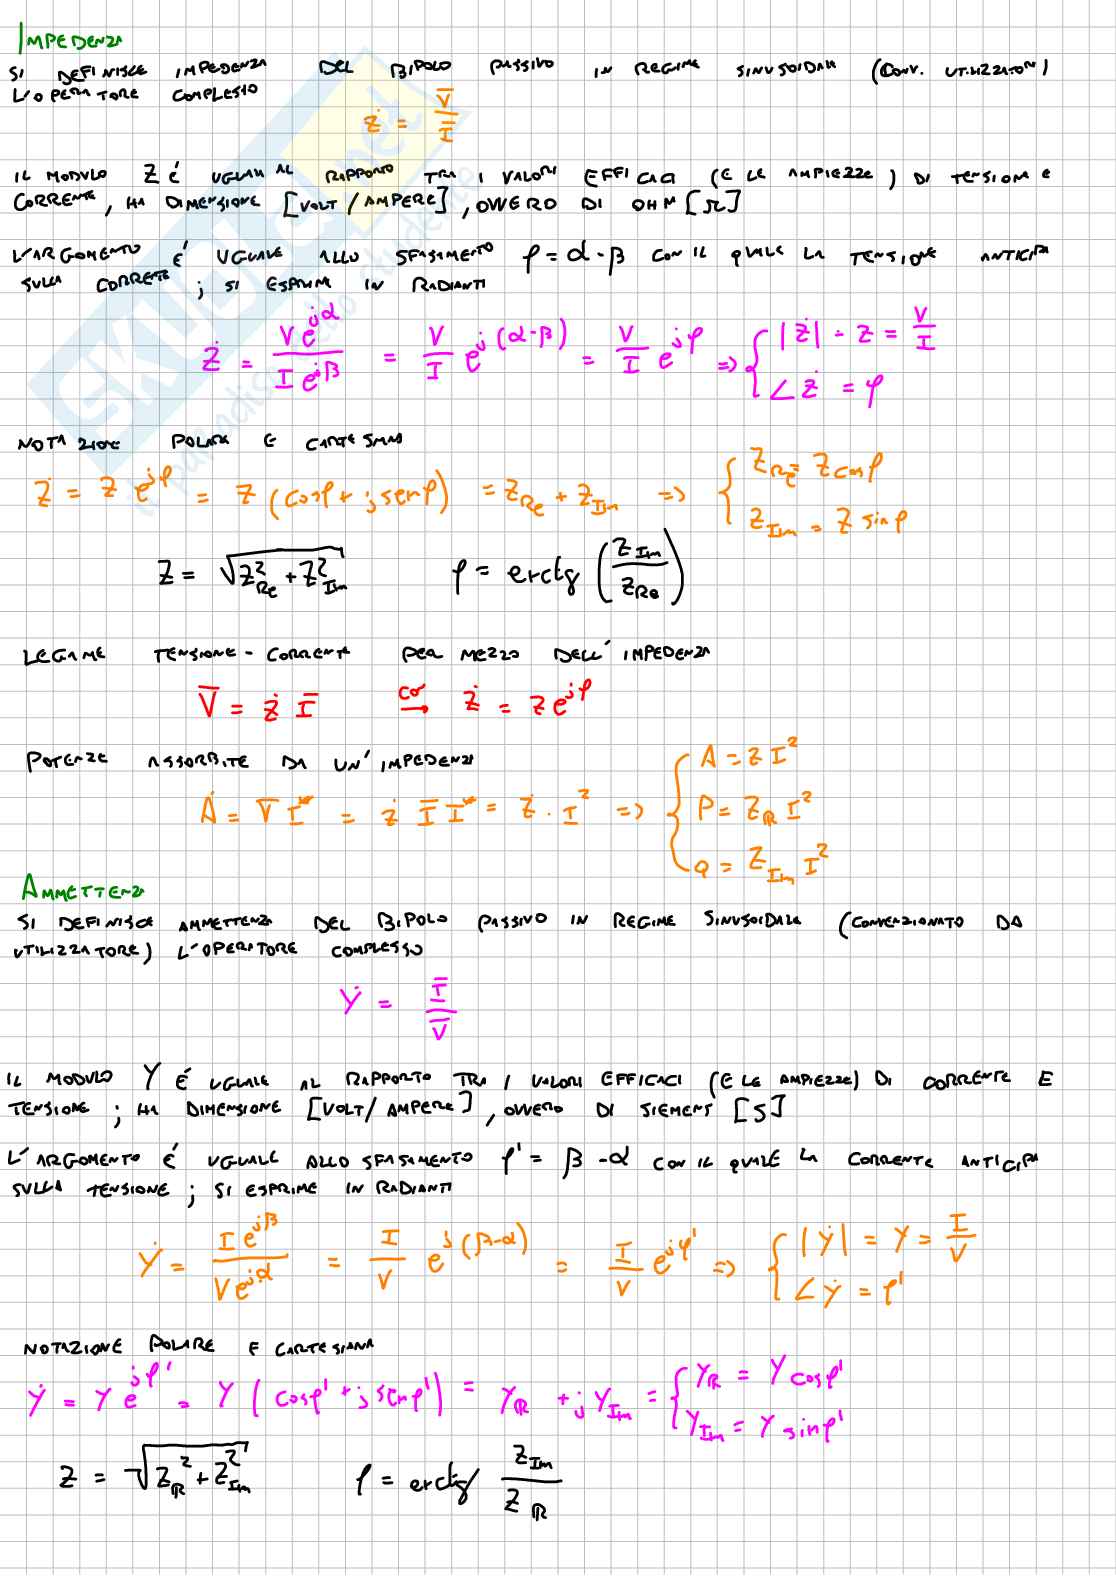 IMPEDENZA
SI DEFINISCE IMPEDENZA DEL BIPOLO PASSIVO IN REGIME SINUSOIDALE (CONV. UTILIZZATORI)
L'OPERATORE COMPLESSO
Ż = V̅ / I̅
IL MODULO Z É UGUALE AL RAPPORTO TRA I VALORI EFFICACI (E LE AMPIEZZE) DI TENSIONE E
CORRENTE, HA DIMENSIONE [VOLT / AMPERE], OVVERO DI OHM [Ω]
L'ARGOMENTO É UGUALE ALLO SFASAMENTO φ = α - β CON IL QUALE LA TENSIONE ANTICIPA
SULLA CORRENTE ; SI ESPRIME IN RADIANTI
Ż = V e^{jα} / I e^{jβ} = V/I e^{j(α-β)} = V/I e^{jφ} => { |Ż| = Z = V/I
∠Ż = φ
NOTAZIONE POLARE E CARTESIANA
Ż = Z e^{jφ} = Z (cosφ + j senφ) = Z_{Re} + Z_{Im} => { Z_{Re} = Z cosφ
Z_{Im} = Z sinφ
Z = √(Z²_{Re} + Z²_{Im}) φ = arctg (Z_{Im} / Z_{Re})
LEGAME TENSIONE - CORRENTE PER MEZZO DELL'IMPEDENZA
V̅ = Ż I̅ con→ Ż = Z e^{jφ}
POTENZE ASSORBITE DA UN'IMPEDENZA
Ȧ = V̅ I* = Ż I̅ I* = Ż · I² => { A = Z I²
P = Z_R I²
Q = Z_{Im} I²
AMMETTENZA
SI DEFINISCE AMMETTENZA DEL BIPOLO PASSIVO IN REGIME SINUSOIDALE (CONVENZIONATO DA
UTILIZZATORE) L'OPERATORE COMPLESSO
Ẏ = I̅ / V̅
IL MODULO Y É UGUALE AL RAPPORTO TRA I VALORI EFFICACI (E LE AMPIEZZE) DI CORRENTE E
TENSIONE ; HA DIMENSIONE [VOLT / AMPERE], OVVERO DI SIEMENS [S]
L'ARGOMENTO É UGUALE ALLO SFASAMENTO φ' = β - α CON IL QUALE LA CORRENTE ANTICIPA
SULLA TENSIONE ; SI ESPRIME IN RADIANTI
Ẏ = I e^{jβ} / V e^{jα} = I/V e^{j(β-α)} = I/V e^{jφ'} => { |Ẏ| = Y = I/V
∠Ẏ = φ'
NOTAZIONE POLARE E CARTESIANA
Ẏ = Y e^{jφ'} = Y (cosφ' + j senφ') = Y_R + j Y_{Im} = { Y_R = Y cosφ'
Y_{Im} = Y sinφ'
Z = √(Z_R² + Z²_{Im}) φ = arctg Z_{Im} / Z_R